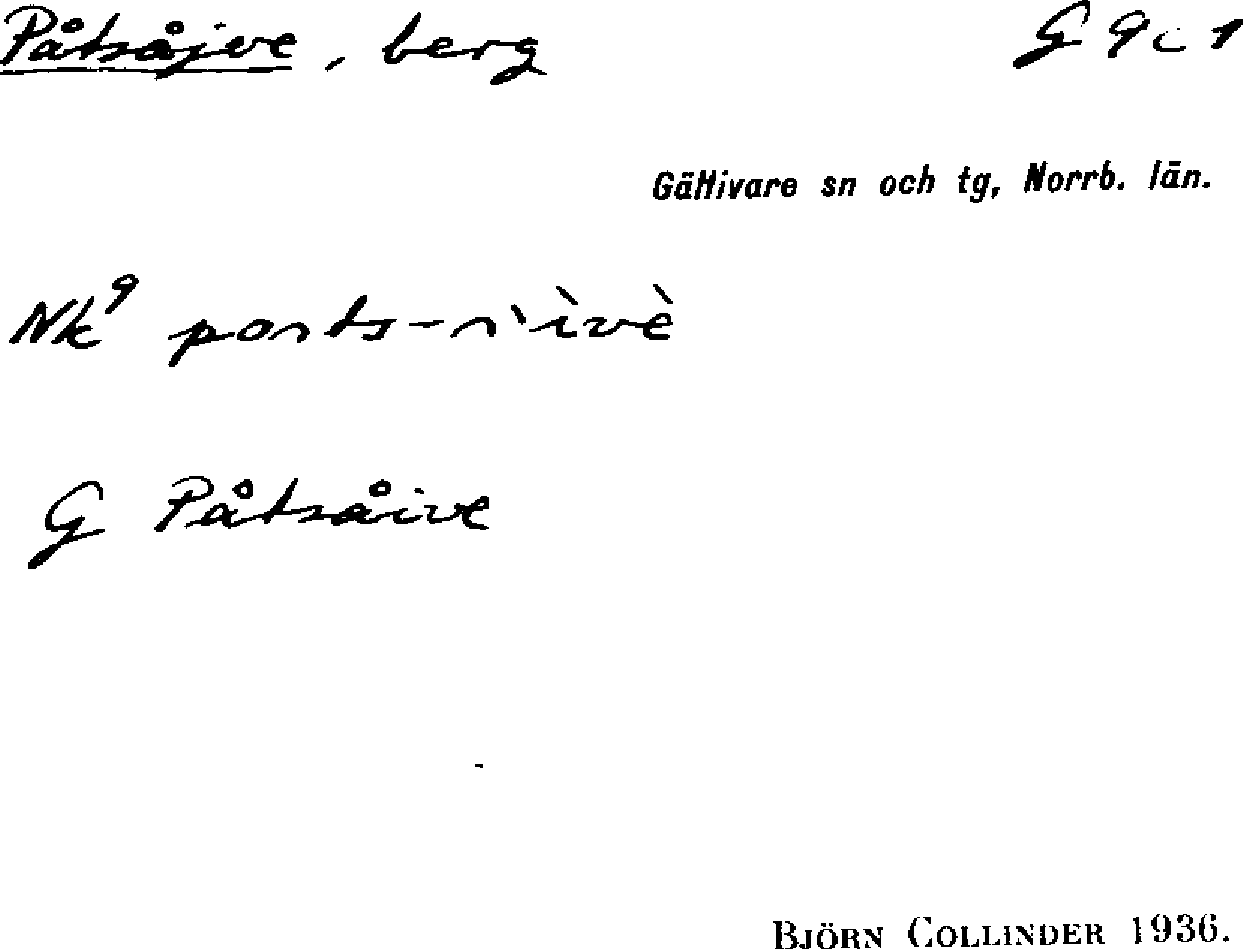 Påtsåjve, berg G 9c 1
Gällivare sn och tg, Norrb. län.
Nk⁹
G Påtsåive
BJÖRN COLLINDER 1936.